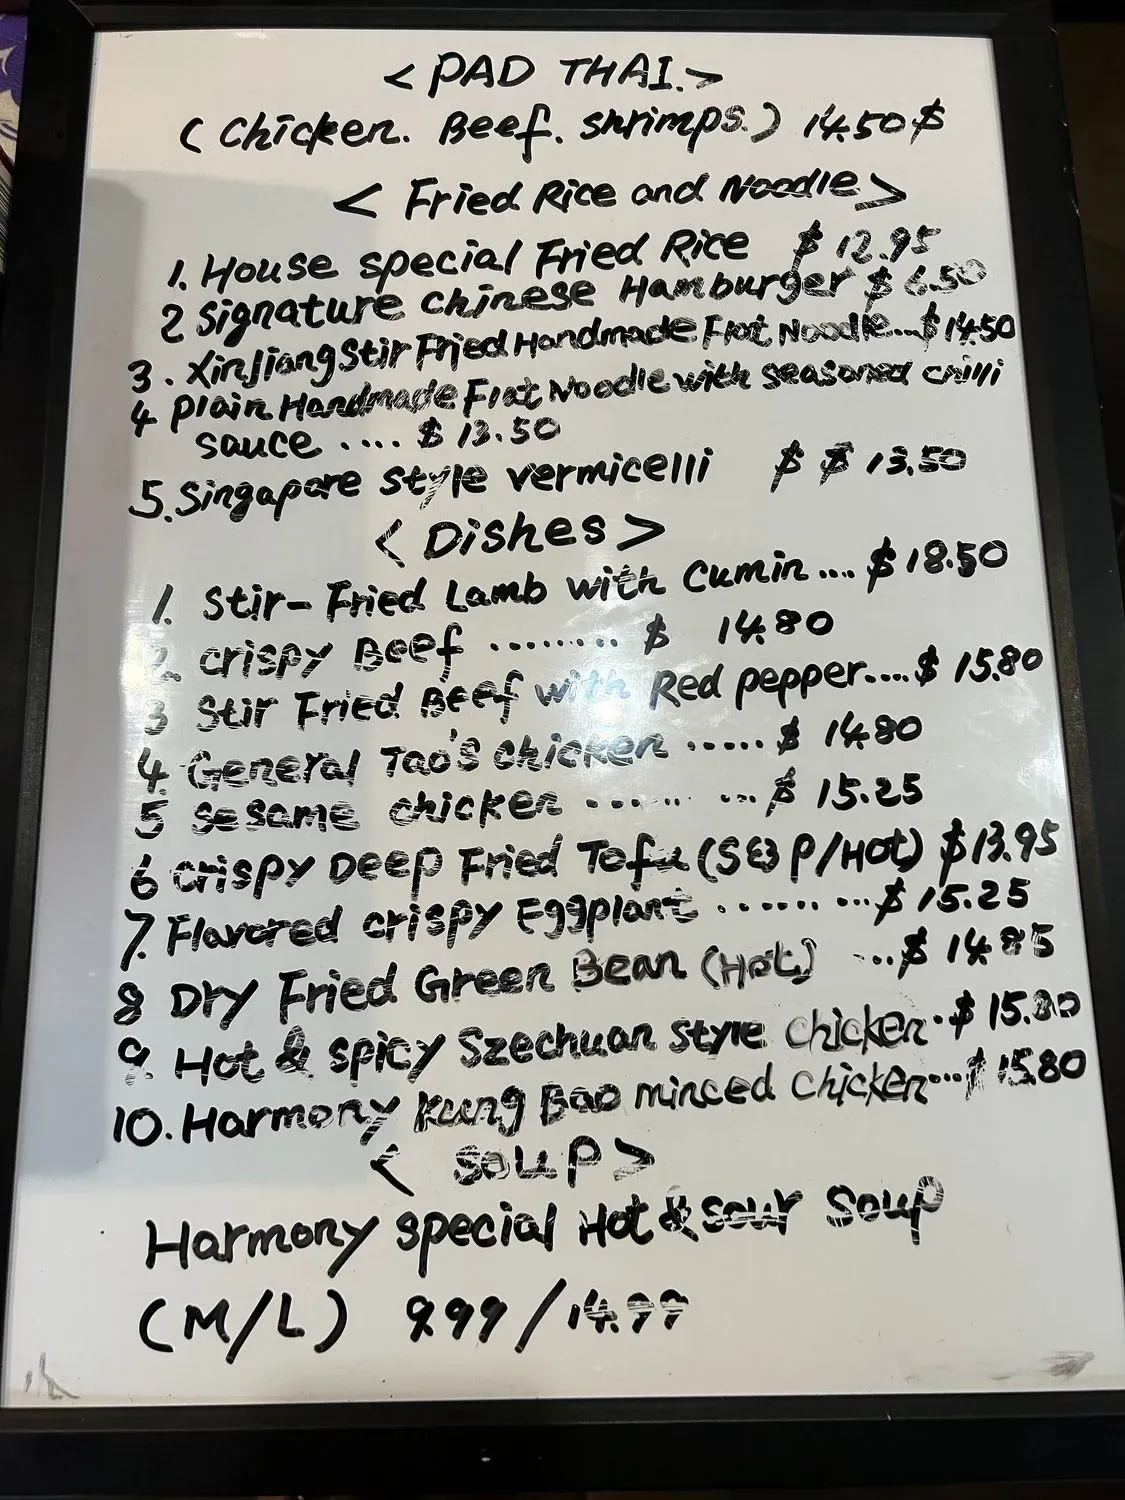 < PAD THAI. >
(Chicken. Beef. shrimps.) 14.50 $
< Fried Rice and Noodle >
1. House special Fried Rice $ 12.95
2 Signature chinese Hamburger $ 6.50
3. XinJiang Stir Fried Handmade Flat Noodle...$ 14.50
4 Plain Handmade Flat Noodle with seasoned chilli
sauce .... $ 13.50
5. Singapore style vermicelli $ $ 13.50
< Dishes >
1. Stir-Fried Lamb with Cumin.... $ 18.50
2. crispy Beef ........ $ 14.80
3 Stir Fried Beef with Red pepper....$ 15.80
4. General Tao's chicken ..... $ 14.80
5 sesame chicken ........ ...$ 15.25
6 crispy Deep Fried Tofu (S&P/Hot) $ 13.95
7. Flavored crispy Eggplant ...... ...$ 15.25
8 Dry Fried Green Bean (Hot) ...$ 14.85
9. Hot & spicy Szechuan style chicken.$ 15.80
10. Harmony Kung Bao minced chicken...$ 15.80
< soup >
Harmony special Hot & sour Soup
(M/L) 9.99 / 14.99